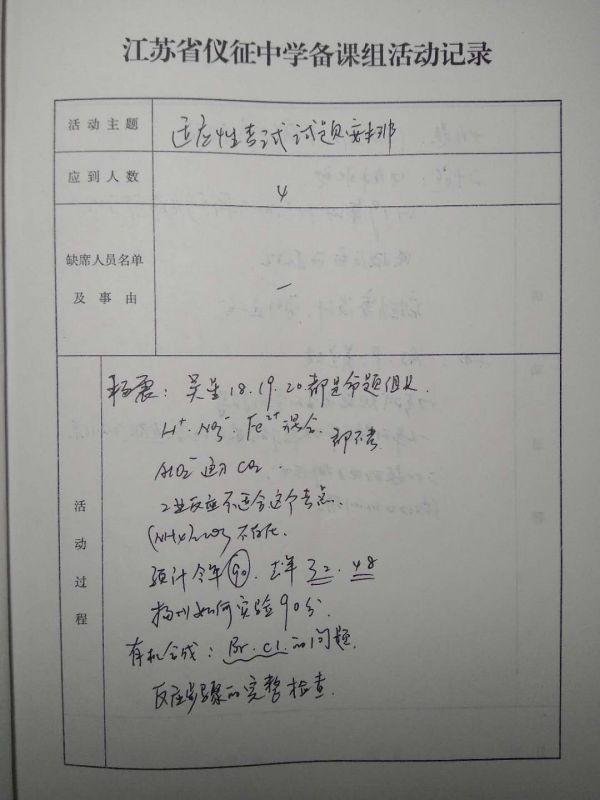 江苏省仪征中学备课组活动记录
活动主题
适应性考试试题安排
应到人数
4
缺席人员名单
及事由
一
活动过程
杨震：吴星18.19.20都是命题组长
H⁺. NO₃⁻. Fe²⁺混合. 都不考
AlO₂⁻通入CO₂
工业反应不适合这个考点.
(NH₄)₂CO₃不存在.
预计今年90. 去年32. 48
扬州如何实验90分.
有机合成：Br. Cl. 的问题.
反应步骤的完整检查.